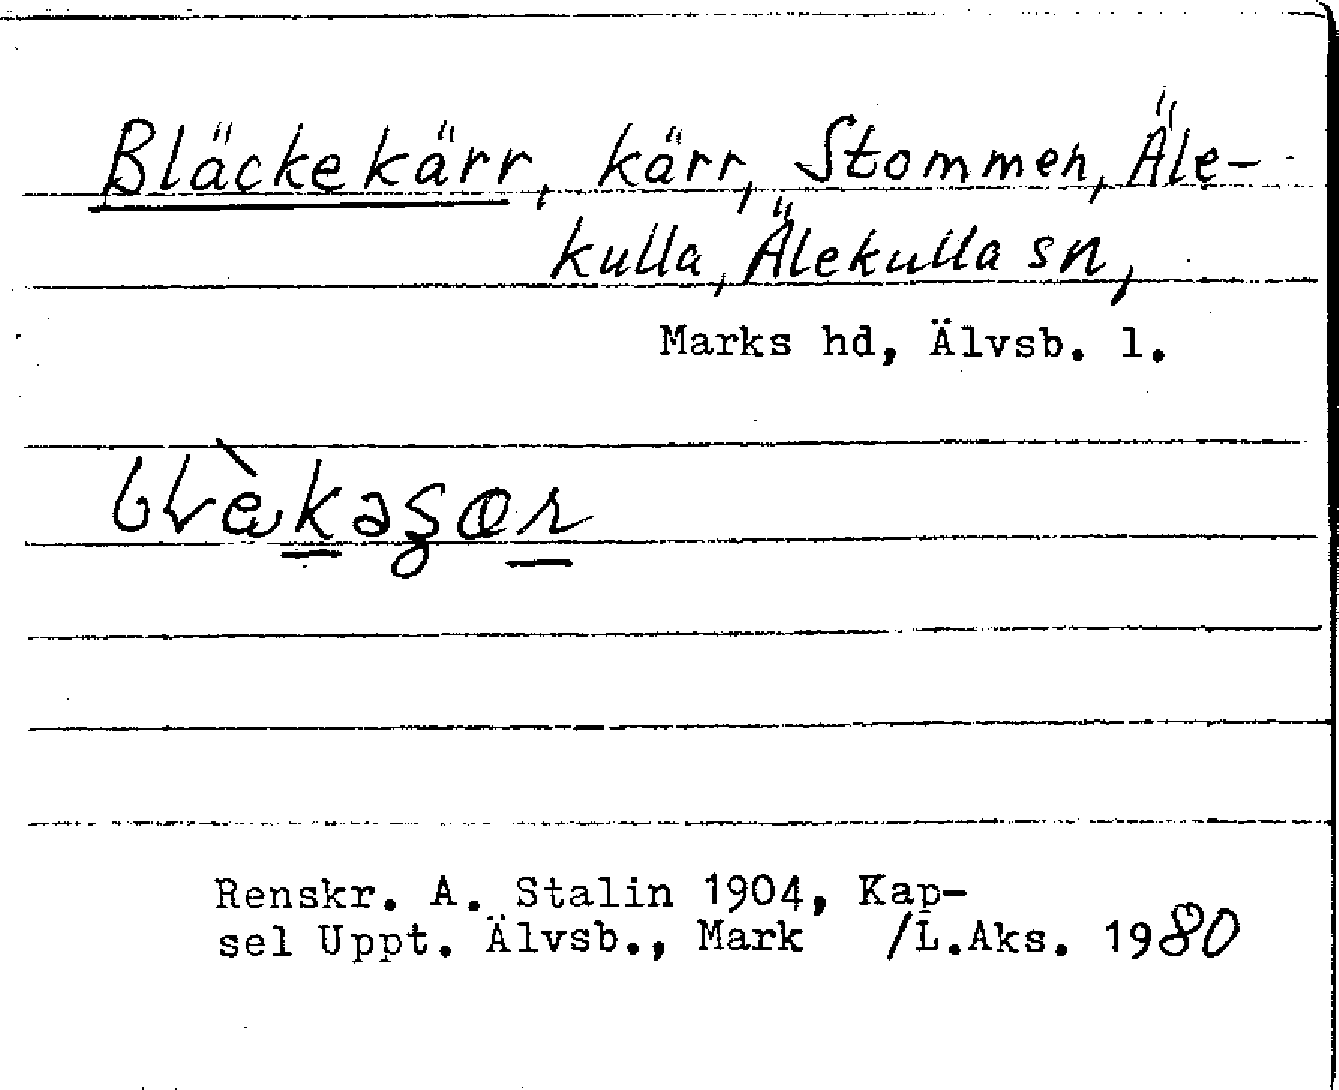 Bläckekärr, kärr, Stommen, Äle-
kulla, Älekulla sn,
Marks hd, Älvsb. l.
Renskr. A. Stalin 1904, Kap-
sel Uppt. Älvsb., Mark /L.Aks. 1980